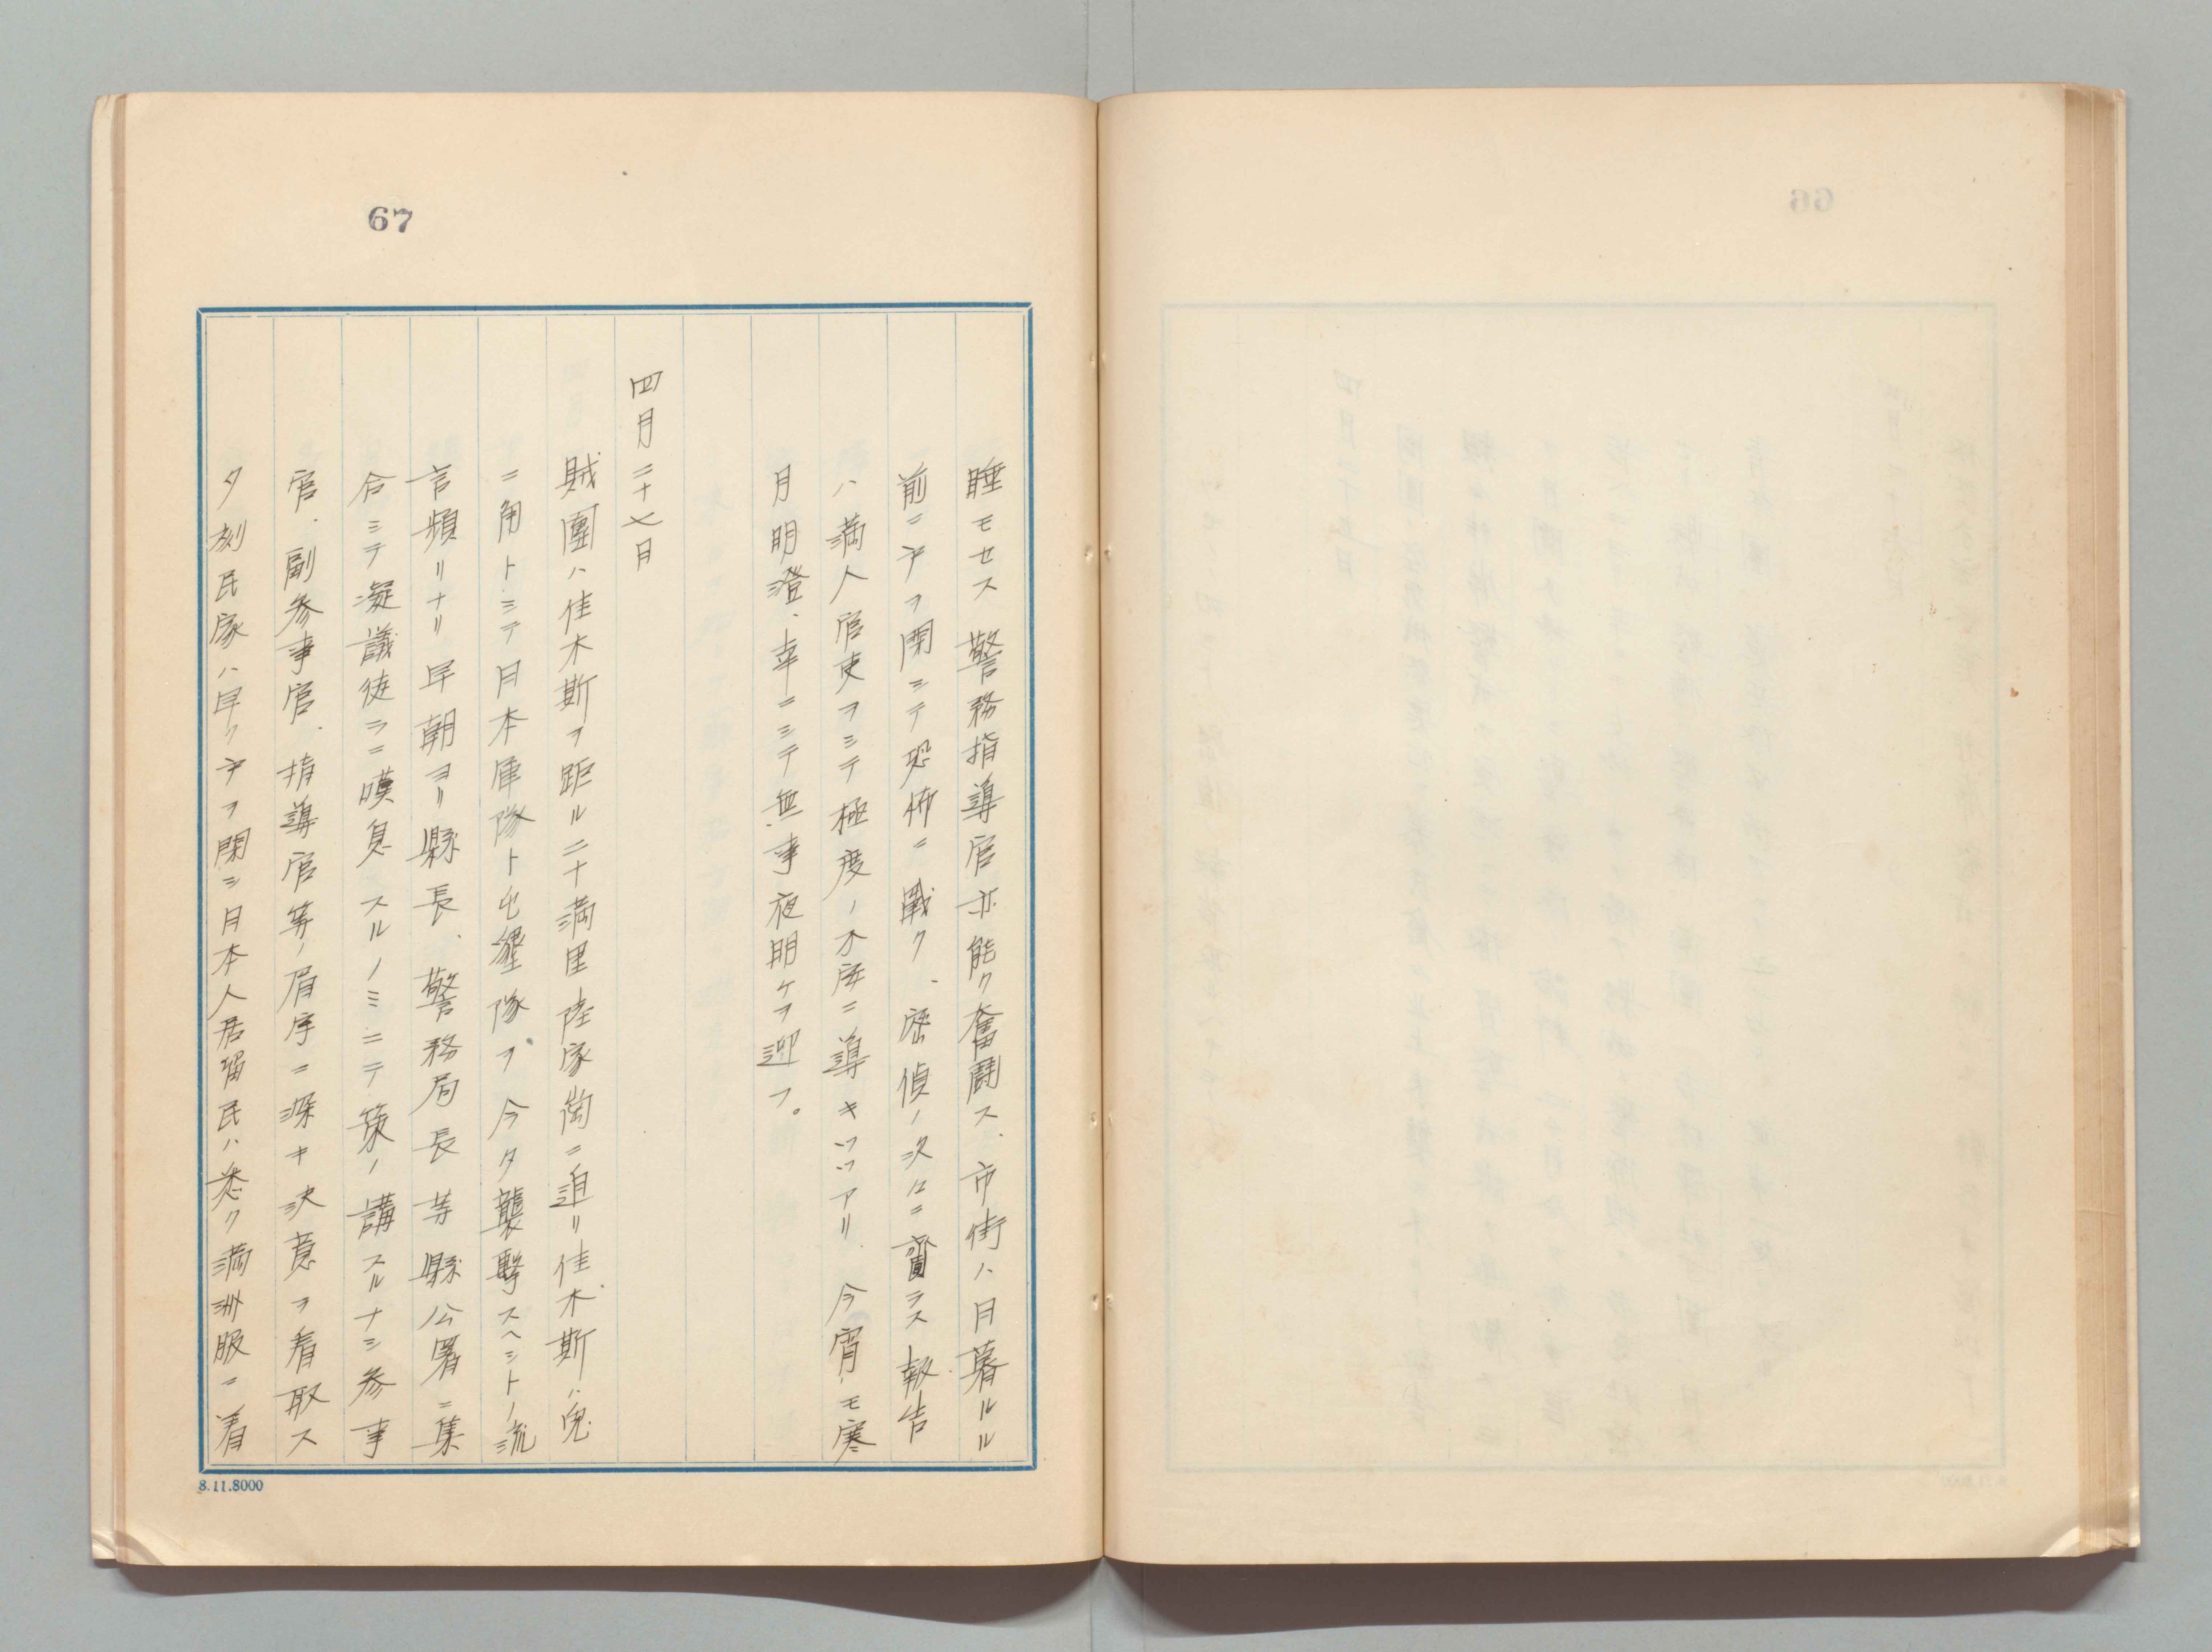 67
睡モセス警務指導官亦能ク奮闘ス、市街ハ日暮ルル
前ニ戸ヲ閉シテ恐怖ニ戰ク、密偵ノ次々ニ齎ラス報告
ハ満人官吏ヲシテ極度ノ不安ニ導キツツアリ、今宵モ寒
月明澄、幸ニシテ無事夜明ケヲ迎フ。
四月二十七日
賊團ハ佳木斯ヲ距ル二十満里陸家崗ニ迫リ佳木斯ハ兎
ニ角トシテ日本軍隊ト屯墾隊ヲ今夕襲撃スヘシトノ流
言頻リナリ早朝ヨリ縣長、警務局長等縣公署ニ集
合シテ凝議徒ラニ嘆息スルノミニテ策ノ講スルナシ参事
官、副参事官、指導官等ノ眉宇ニ深キ決意ヲ看取ス
夕刻民家ハ早ク戸ヲ閉シ日本人居留民ハ悉ク満洲服ニ着
8.11.8000